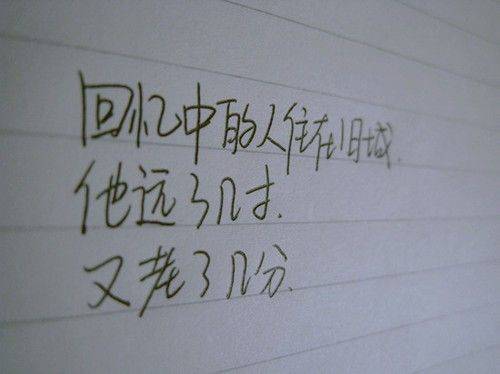 回忆中的人住在旧城.
他远了几寸.
又老了几分.